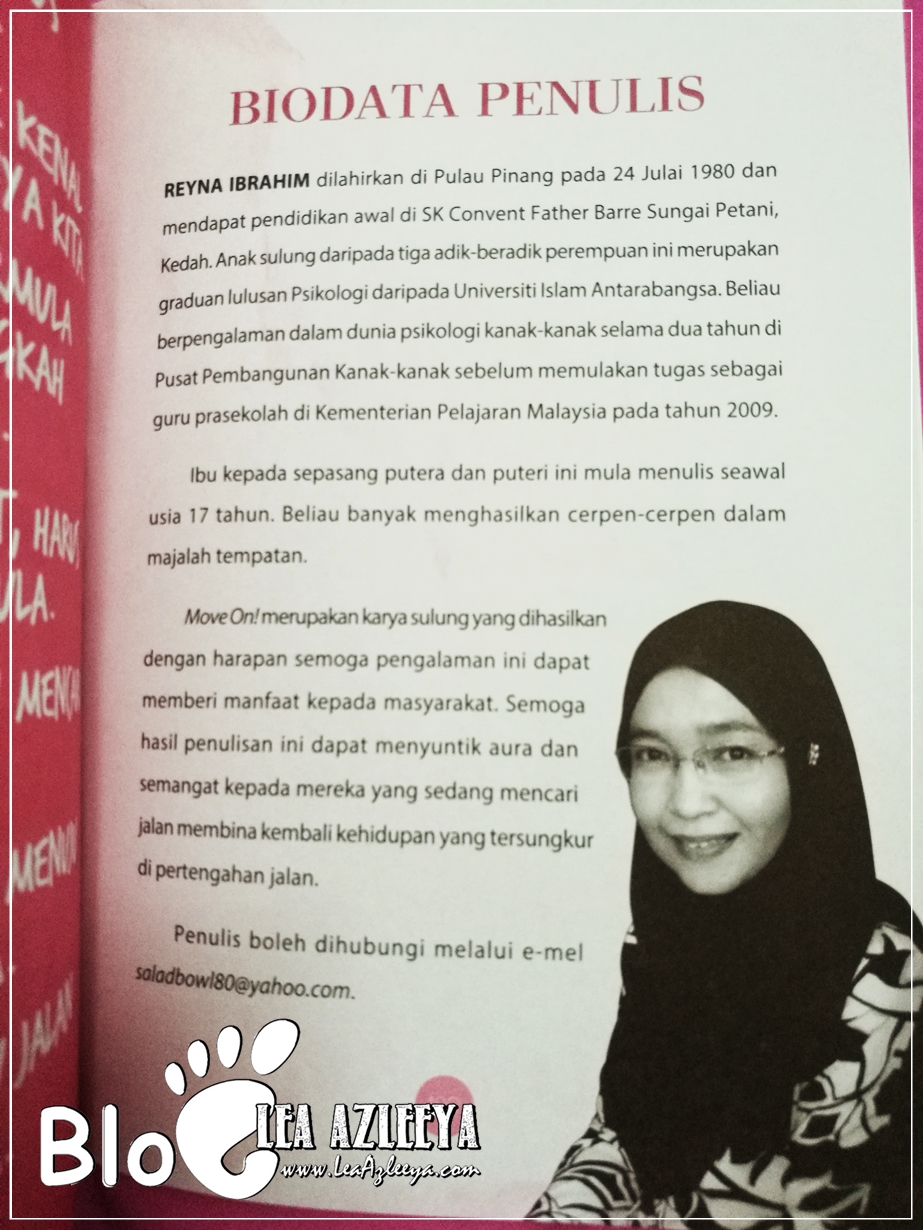 KENAL
YA KITA
MULA
GKAH
HARUS
ULA.
MENCA
JALAN
BIODATA PENULIS
REYNA IBRAHIM dilahirkan di Pulau Pinang pada 24 Julai 1980 dan
mendapat pendidikan awal di SK Convent Father Barre Sungai Petani,
Kedah. Anak sulung daripada tiga adik-beradik perempuan ini merupakan
graduan lulusan Psikologi daripada Universiti Islam Antarabangsa. Beliau
berpengalaman dalam dunia psikologi kanak-kanak selama dua tahun di
Pusat Pembangunan Kanak-kanak sebelum memulakan tugas sebagai
guru prasekolah di Kementerian Pelajaran Malaysia pada tahun 2009.
Ibu kepada sepasang putera dan puteri ini mula menulis seawal
usia 17 tahun. Beliau banyak menghasilkan cerpen-cerpen dalam
majalah tempatan.
Move On! merupakan karya sulung yang dihasilkan
dengan harapan semoga pengalaman ini dapat
memberi manfaat kepada masyarakat. Semoga
hasil penulisan ini dapat menyuntik aura dan
semangat kepada mereka yang sedang mencari
jalan membina kembali kehidupan yang tersungkur
di pertengahan jalan.
Penulis boleh dihubungi melalui e-mel
saladbowl80@yahoo.com.
Blog LEA AZLEEYA
www.LeaAzleeya.com